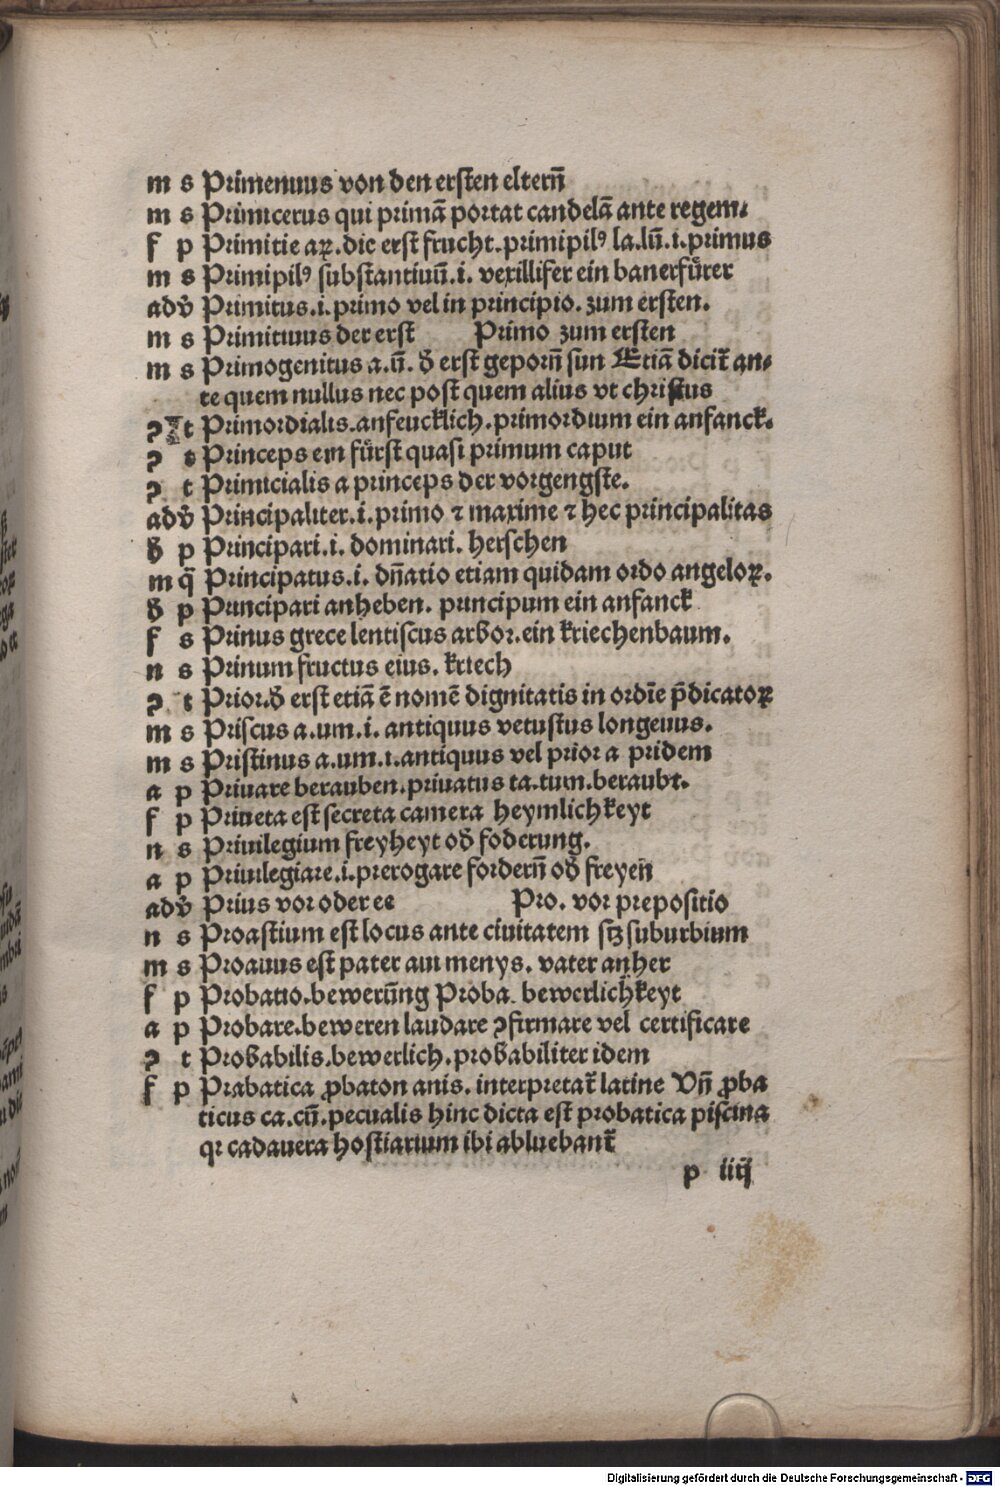 m s Primenuus von den ersten elterñ
m s Primicerus qui primã portat candelã ante regem⸗
f p Primitie aꝝ. die erst frucht. primipilꝰ la. lũ. i. primus
m s Primipilꝰ substantiuũ. i. vexillifer ein banerfürer
adv̄ Primitus. i. primo vel in principio. zum ersten.
m s Primitiuus der erst Primo zum ersten
m s Primogenitus a. ũ. đ erst geporñ sun Etiã dicit̃ an⸗
te quem nullus nec post quem alius vt christus
ꝯ t Primordialis. anfeucklich. primordium ein anfanck.
ꝯ s Princeps ein fürst quasi primum caput
ꝯ t Primicialis a princeps der vorgengste.
adv̄ Principaliter. i. primo ⁊ maxime ⁊ hec principalitas
đ p Principari. i. dominari. herschen
m q̃ Principatus. i. dñatio etiam quidam ordo angeloꝝ.
đ p Principari anheben. principum ein anfanck
f s Prinus grece lentiscus arbor. ein kriechenbaum.
n s Prinum fructus eius. kriech
ꝯ t Prior. đ erst etiã ẽ nomẽ dignitatis in ordĩe p̃dicatoꝝ
m s Priscus a. um. i. antiquus vetustus longeuus.
m s Pristinus a. um. i. antiquus vel prior a pridem
a p Priuare berauben. priuatus ta. tum. beraubt.
f p Priueta est secreta camera heymlichkeyt
n s Priuilegium freyheyt ođ foderung.
a p Priuilegiare. i. prerogare forderñ ođ freyen
adv̄ Prius vor oder ee Pro. vor prepositio
n s Proastium est locus ante ciuitatem sꝫ suburbium
m s Proauus est pater aui menys. vater anher
f p Probatio. bewerũng Proba. bewerlichkeyt
a p Probare. beweren laudare ꝯfirmare vel certificare
ꝯ t Probabilis. bewerlich. probabiliter idem
f p Prabatica ꝓbaton anis. interpretat̃ latine Vñ ꝓba
ticus ca. cũ. pecualis hinc dicta est probatica piscina
qꝛ cadauera hostiarium ibi abluebant̃
p iiij
Digitalisierung gefördert durch die Deutsche Forschungsgemeinschaft - DFG